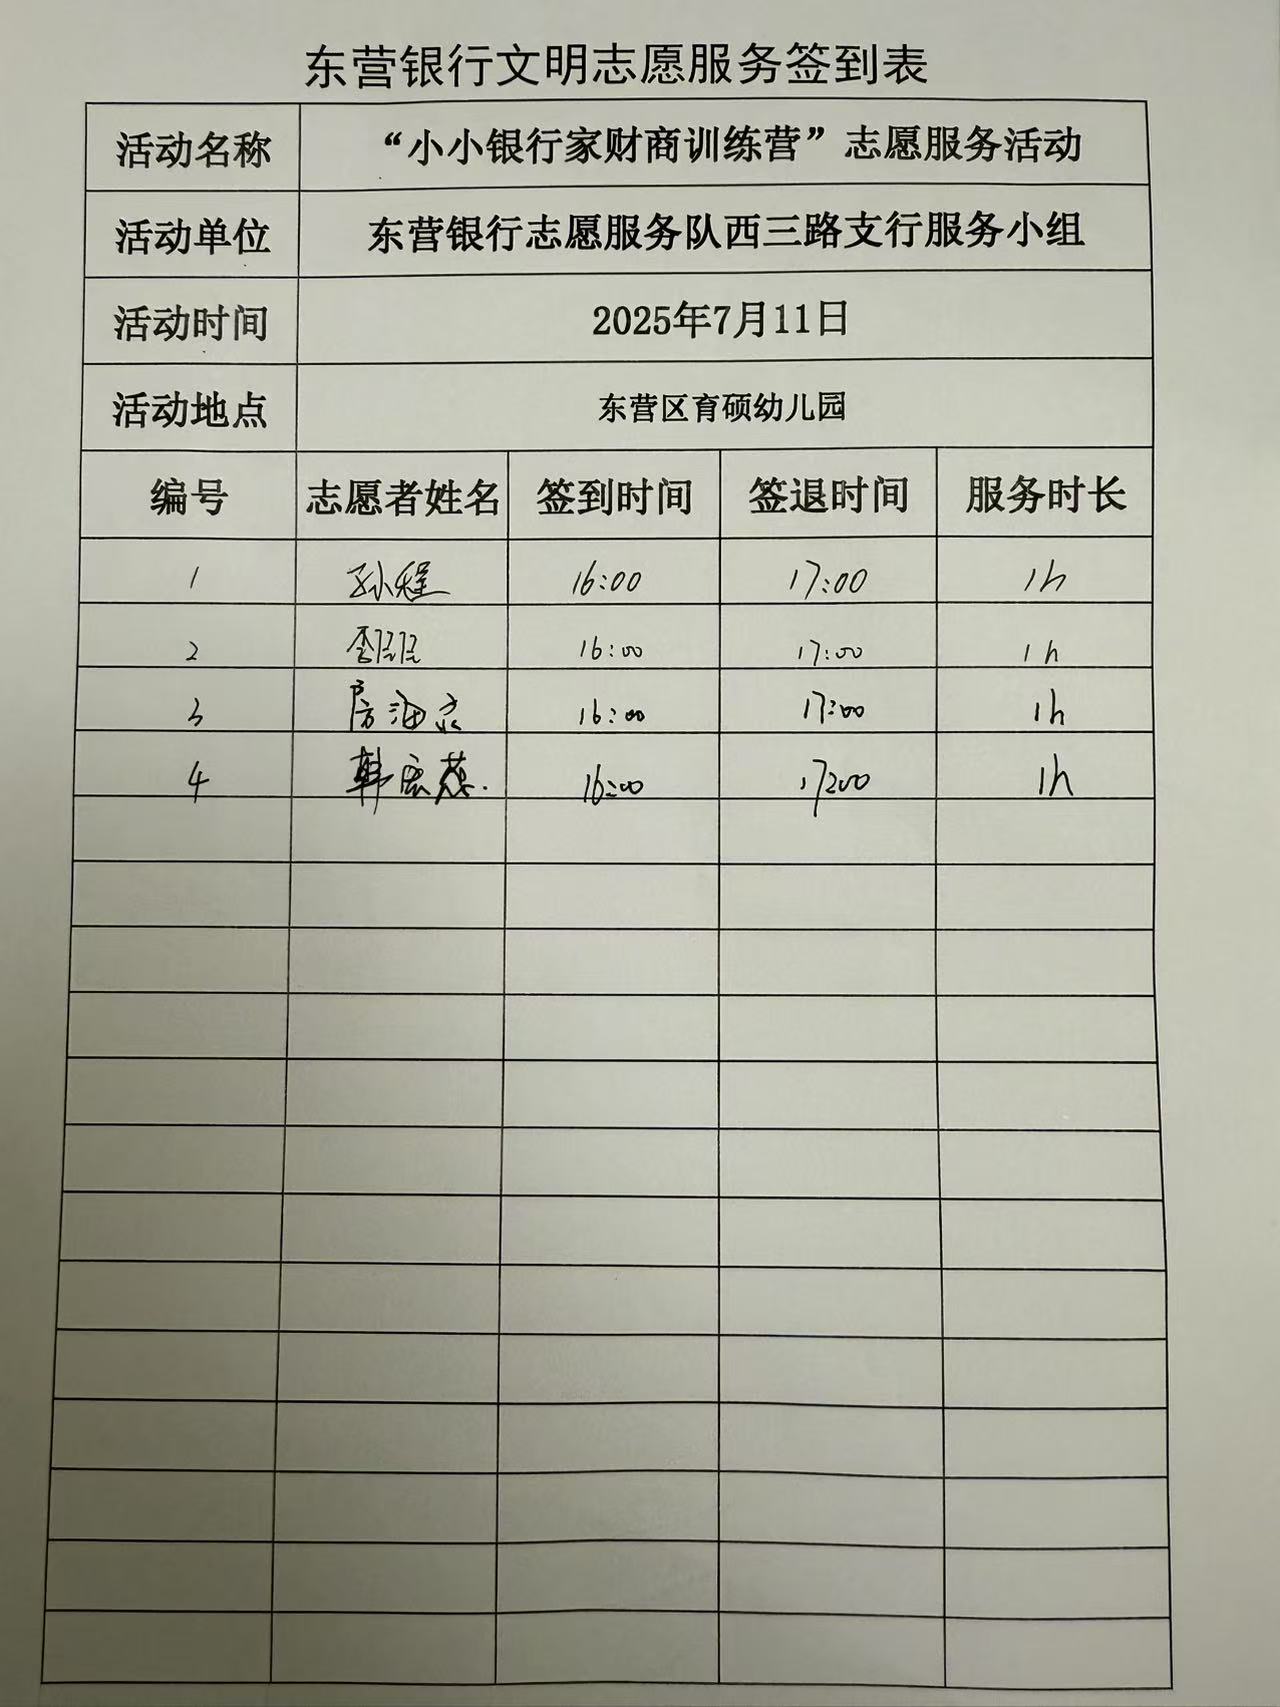 东营银行文明志愿服务签到表
活动名称 “小小银行家财商训练营”志愿服务活动
活动单位 东营银行志愿服务队西三路支行服务小组
活动时间 2025年7月11日
活动地点 东营区育硕幼儿园
编号 志愿者姓名 签到时间 签退时间 服务时长
1 孙程 16:00 17:00 1h
2 16:00 17:00 1h
3 16:00 17:00 1h
4 16:00 17:00 1h